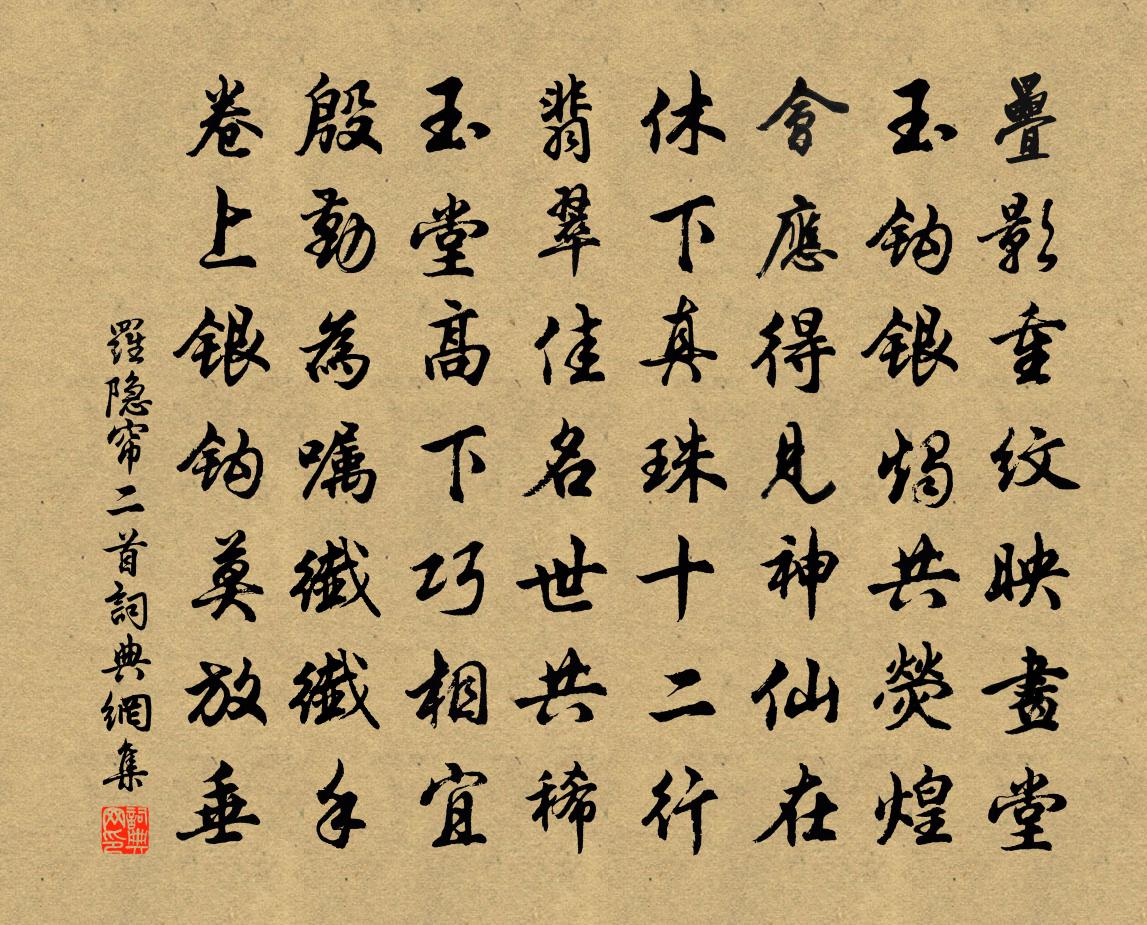 疊影重紋映畫堂
玉鈎銀燭共熒煌
會應得見神仙在
休下真珠十二行
翡翠佳名世共稀
玉堂高下巧相宜
殷勤為嘱纖纖手
卷上銀鈎莫放垂
羅隐帘二首詞典網集
詞典网印